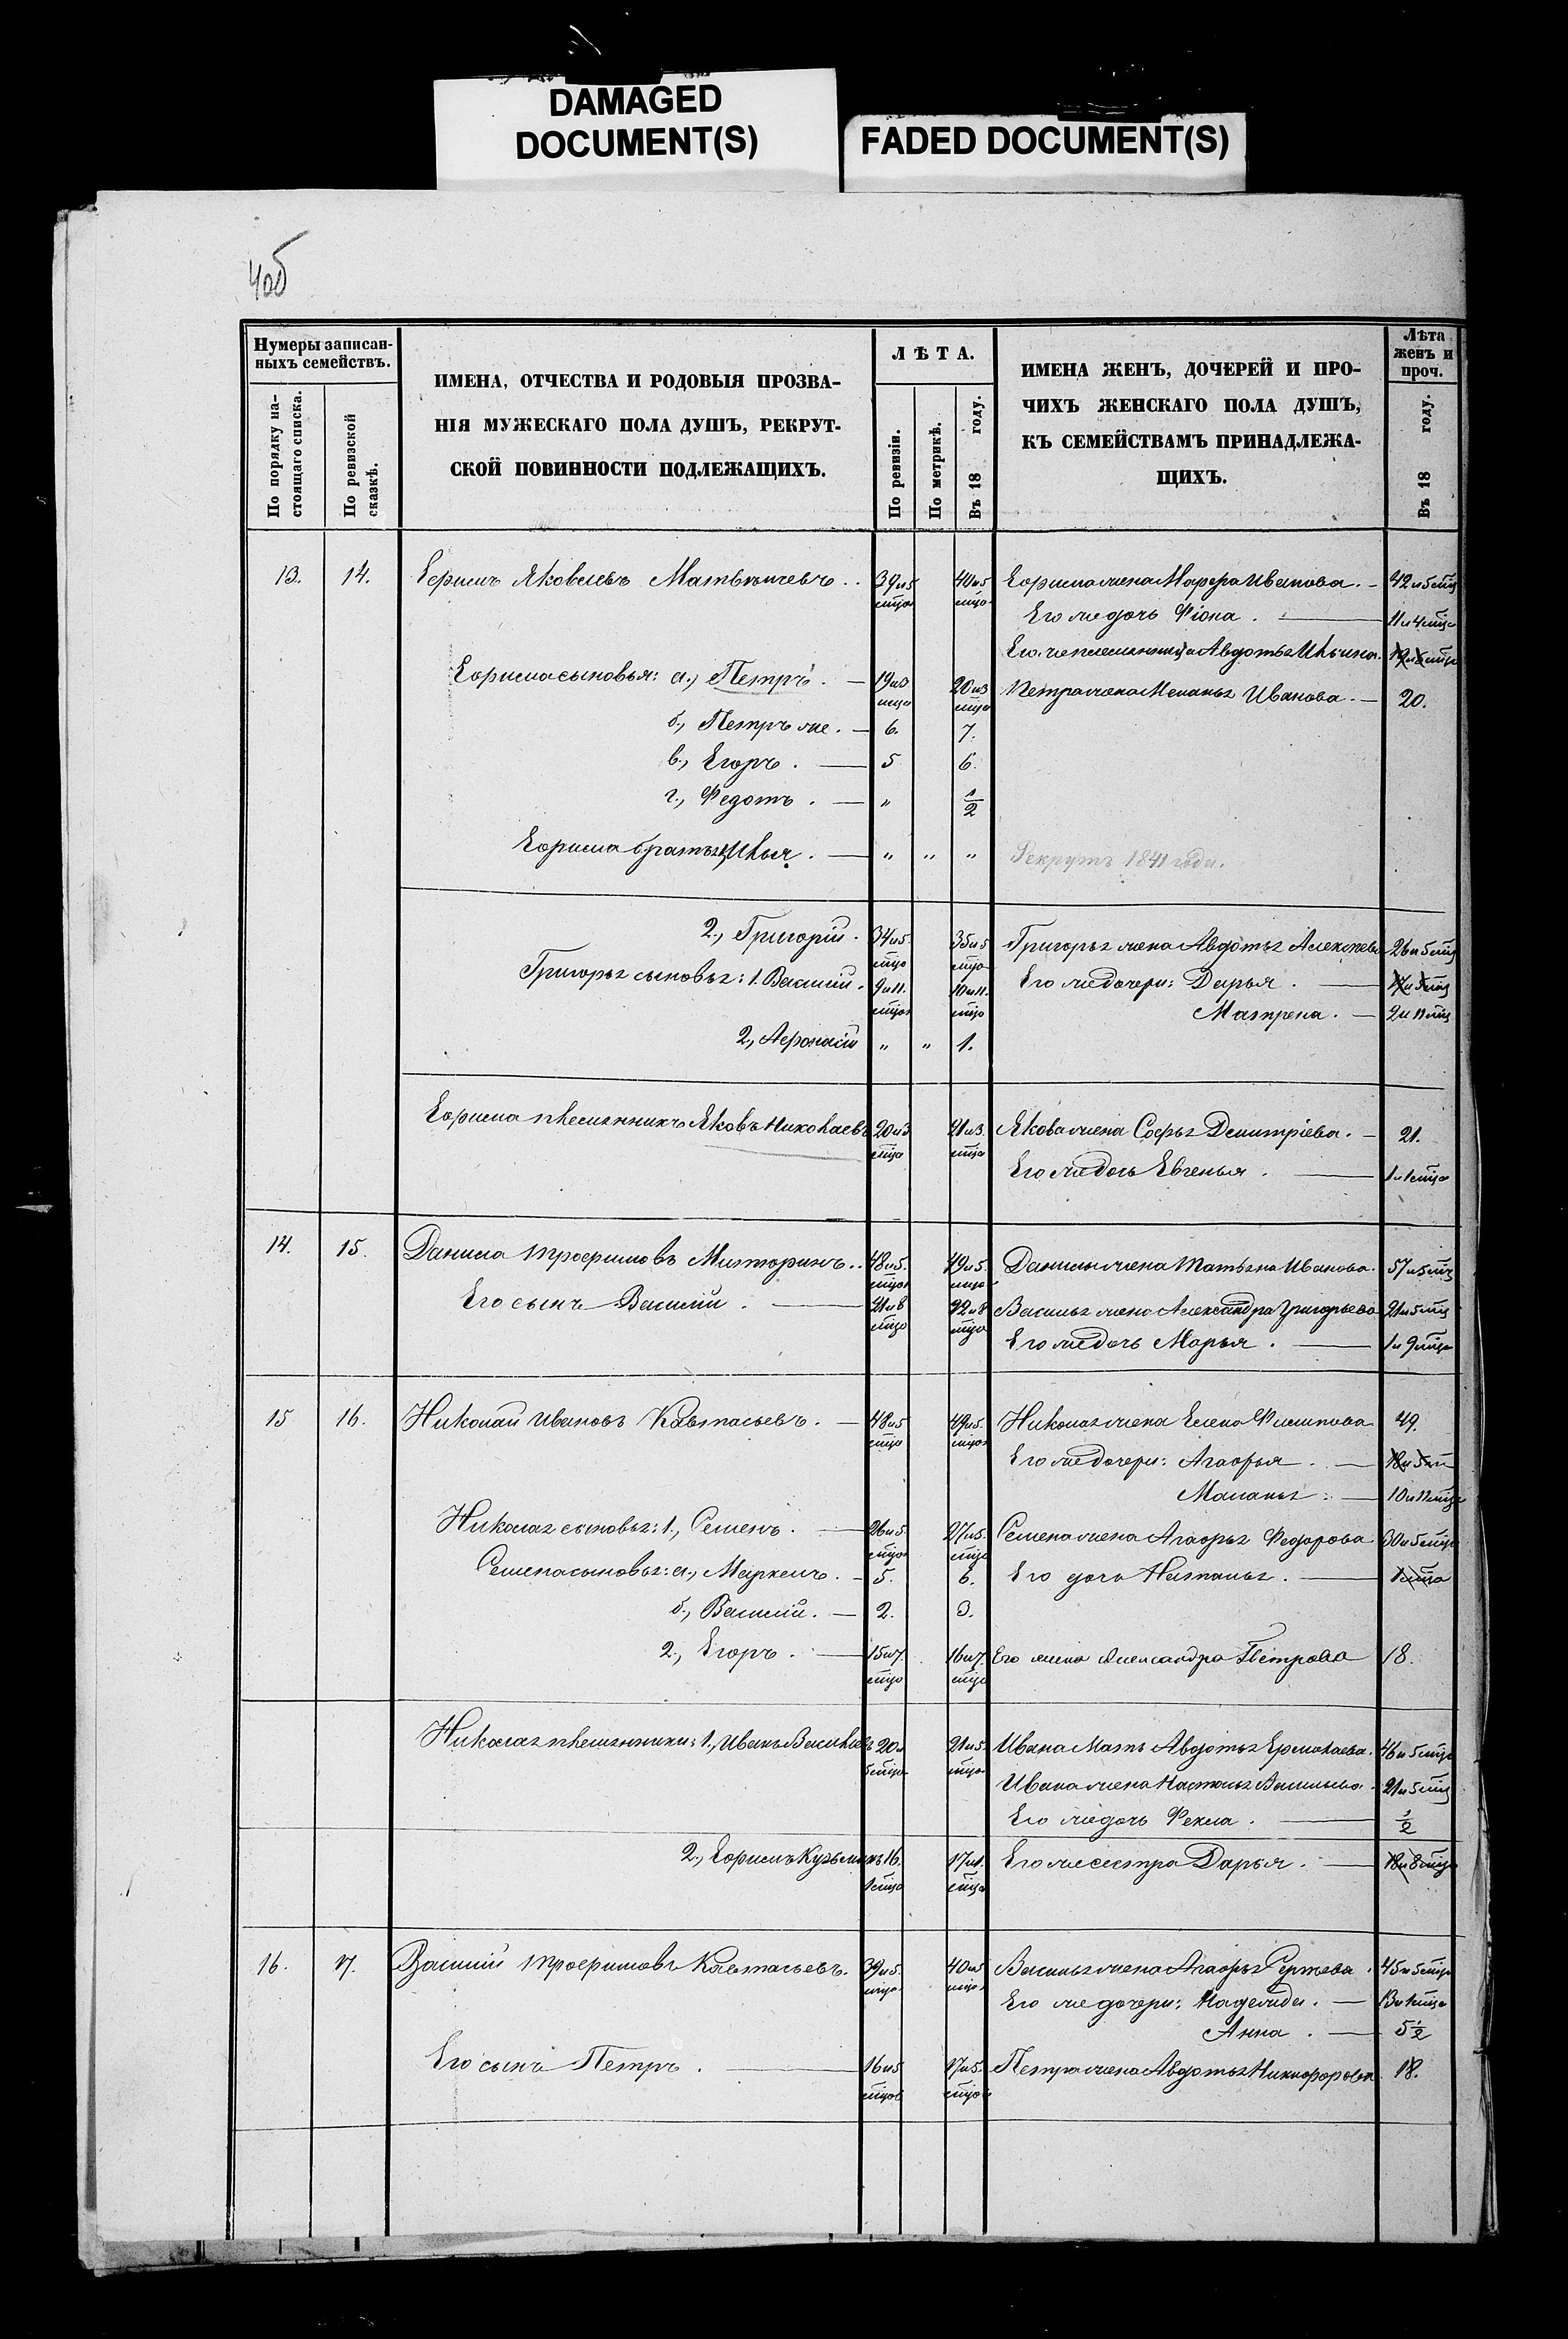 DAMAGED
DOCUMENT(S)
FADED DOCUMENT(S)
40об
Нумеры записан-
ныхъ семействъ.
По порядку на-
стоящаго списка.
По ревизской
сказкѣ.
ИМЕНА, ОТЧЕСТВА И РОДОВЫЯ ПРОЗВА-
НІЯ МУЖЕСКАГО ПОЛА ДУШЪ, РЕКРУТ-
СКОЙ ПОВИННОСТИ ПОДЛЕЖАЩИХЪ.
ЛѢТА.
По ревизіи.
По метрикѣ.
Въ 18 году.
ИМЕНА ЖЕНЪ, ДОЧЕРЕЙ И ПРО-
ЧИХЪ ЖЕНСКАГО ПОЛА ДУШЪ,
КЪ СЕМЕЙСТВАМЪ ПРИНАДЛЕЖА-
ЩИХЪ.
Лѣта
женъ и
проч.
Въ 18 году.
13. 14. Ефимъ Яковлевъ 39 и 5 мцов 40 и 5 мцо Ефима жена Марфа Иванова. 42 и 5 мцо
Его же дочь Фіона. 11 и 4 мцо
Его же племянница Авдотья Ильина.
Ефима сыновья: а., Петръ. 19 и 3 мцо 20 и 3 мцо Петра жена Меланья Иванова. 20.
б., Петръ же. 6. 7.
в., Егоръ. 5 6.
г., Федотъ. " 1/2
Ефима братья: Илья. " " " Рекрутъ 1841 года.
2., Григорій. 34 и 5 мцо 35 и 5 мцо Григорья жена Авдотья Алексѣева 26 и 5 мцо
Григорья сыновья: 1. Василій. 9 и 11. мцов 10 и 11. мцо Его же дочери: Дарья.
Матрена. 2 и 11 мцо
2., Афонасій " " 1.
Ефима племянникъ Яковъ Николаевъ 20 и 3 мцо 21 и 3. мцо Якова жена Софья Дмитріева. 21.
Его же дочь Евгенья. 1 и 1 мцо
14. 15. Данила Трофимовъ 48 и 5. мцов 49 и 5. мцо Данилы жена Татьяна Иванова. 57 и 5 мцо
Его сынъ Василій. 21 и 8 мцо 22 и 8 мцо Василья жена Александра Григорьева 21 и 5 мцо
Его же дочь Марья. 1 и 9 мцо
15 16. Николай Ивановъ 48 и 5 мцо 49 и 5. мцов Николая жена Елена Филипова 49.
Его же дочери: Агафья. 18 и 5 мцо
Маланья. 10 и 11 мцо
Николая сыновья: 1., Семенъ. 26 и 5. мцов 27 и 5. мцо Семена жена Агафья Федорова 30 и 5 мцо
Семена сыновья: а., Маркелъ. 5. 6. Его дочь Настасья.
б., Василій. 2. 3.
2., Егоръ. 15 и 7. мцо 16 и 7. мцо Его жена Александра Петрова 18.
Николая племянники: 1., Иванъ Васильевъ 20 и 5 мцо 21 и 5. мцо Ивана мать Авдотья Ермолаева. 46 и 5 мцо
Ивана жена Настасья Васильева. 21 и 5 мцо
Его же дочь Фекла. 1/2
2., Ефимъ Кузьминъ 16. 1 мцо 17 и 1. мцо Его же сестра Дарья. 18 и 8 мцо
16. 17. Василій Трофимовъ 39 и 5. мцо 40 и 5 мцо Василья жена Агафья Сергѣева. 45 и 5 мцо
Его же дочери: Надежда. 13 и 1 мцо
Анна. 5 1/2
Его сынъ Петръ. 16 и 5 мцов 17 и 5. мцов Петра жена Авдотья Никифорова 18.